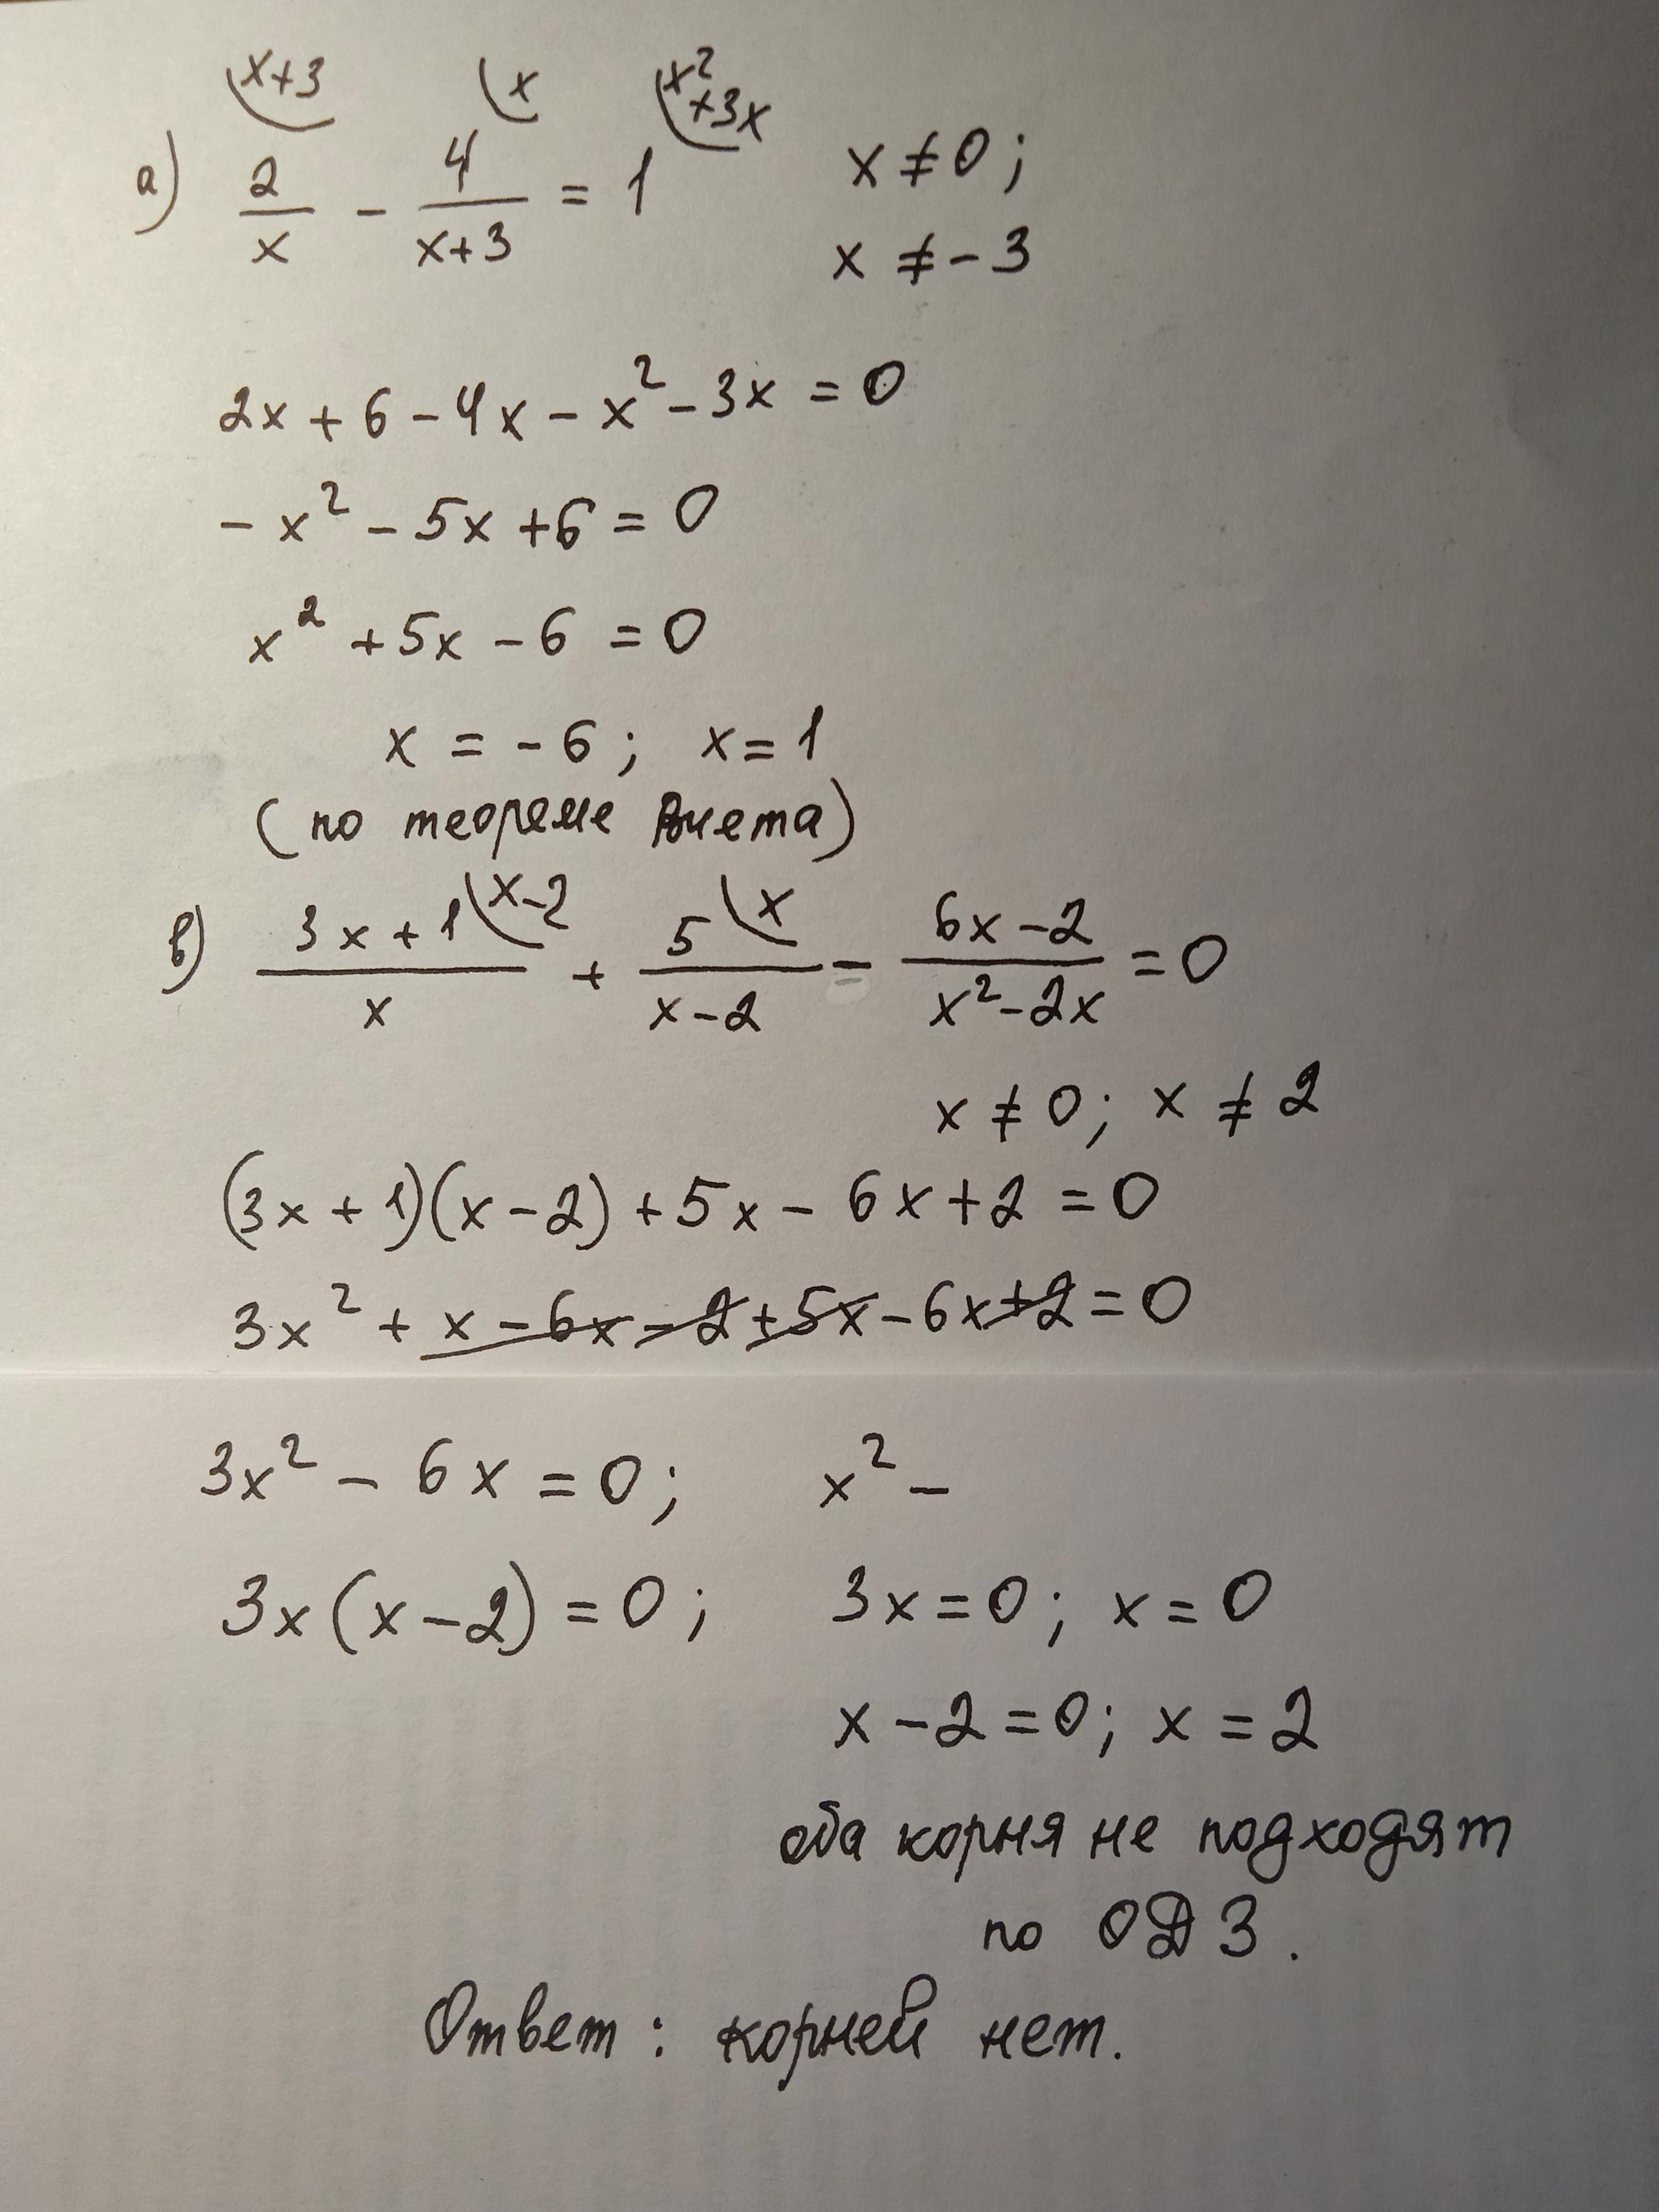 x+3 x x²+3x
а) 2/x - 4/(x+3) = 1 x ≠ 0;
x ≠ -3
2x + 6 - 4x - x² - 3x = 0
- x² - 5x + 6 = 0
x² + 5x - 6 = 0
x = -6; x = 1
(по теореме Виета)
x-2 x
в) (3x+1)/x + 5/(x-2) - (6x-2)/(x²-2x) = 0
x ≠ 0; x ≠ 2
(3x + 1)(x - 2) + 5x - 6x + 2 = 0
3x² + x - 6x - 2 + 5x - 6x + 2 = 0
3x² - 6x = 0; x² -
3x(x - 2) = 0; 3x = 0; x = 0
x - 2 = 0; x = 2
оба корня не подходят
по ОДЗ.
Ответ: корней нет.